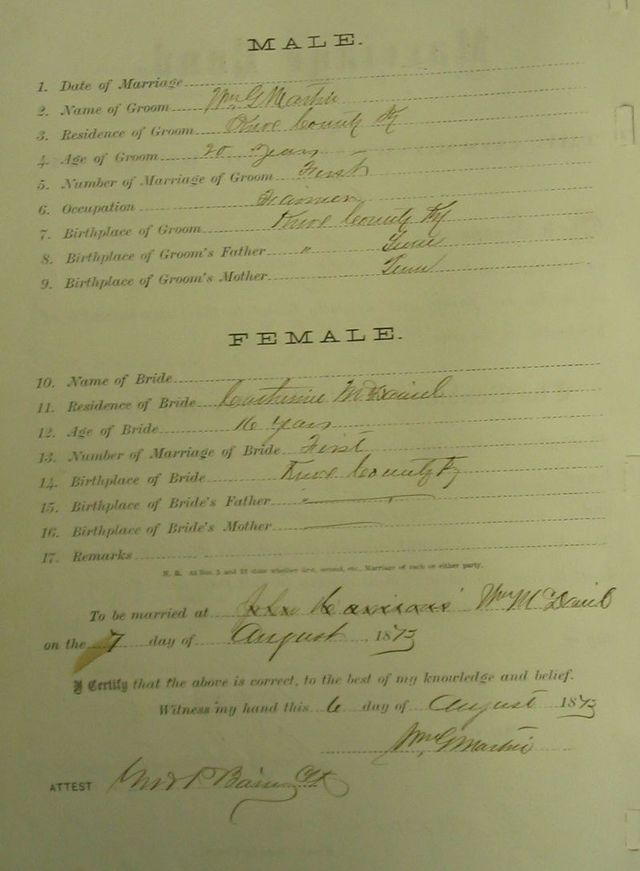 MALE.
1. Date of Marriage
2. Name of Groom Wm G Martin
3. Residence of Groom Knox County Ky
4. Age of Groom 20 years
5. Number of Marriage of Groom First
6. Occupation Farmer
7. Birthplace of Groom Knox County Ky
8. Birthplace of Groom's Father " Tenn
9. Birthplace of Groom's Mother Tenn
FEMALE.
10. Name of Bride
11. Residence of Bride Catherine McDaniel
12. Age of Bride 16 years
13. Number of Marriage of Bride First
14. Birthplace of Bride Knox County Ky
15. Birthplace of Bride's Father "
16. Birthplace of Bride's Mother
17. Remarks
N. B. At Nos. 5 and 13 state whether first, second, etc., Marriage of each or either party.
To be married at Wm McDaniel
on the 7 day of August, 1873
I Certify that the above is correct, to the best of my knowledge and belief.
Witness my hand this 6 day of August 1873
Wm G Martin
ATTEST